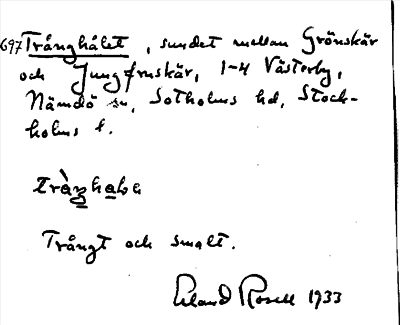 697 Trånghålet, sundet mellan Grönskär
och Jungfruskär, 1-4 Västerby,
Nämdö sn, Sotholms hd, Stock-
holms l.
Trångt och smalt.
Erland Rosell 1933